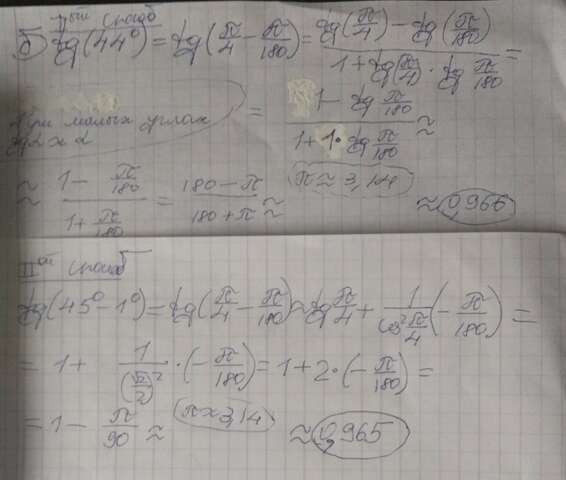 Iый способ
б) tg(44°) = tg(π/4 − π/180) = (tg(π/4) − tg(π/180)) / (1 + tg(π/4) · tg π/180) =
При малых углах
tg α ≈ α
= (1 − tg π/180) / (1 + 1 · tg π/180) ≈
≈ (1 − π/180) / (1 + π/180) = (180 − π) / (180 + π) ≈
π ≈ 3,14
≈ 0,966
IIой способ
tg(45° − 1°) = tg(π/4 − π/180) ≈ tg π/4 + 1/(cos² π/4) (− π/180) =
= 1 + 1/(√2/2)² · (− π/180) = 1 + 2 · (− π/180) =
= 1 − π/90 ≈
π ≈ 3,14
≈ 0,965